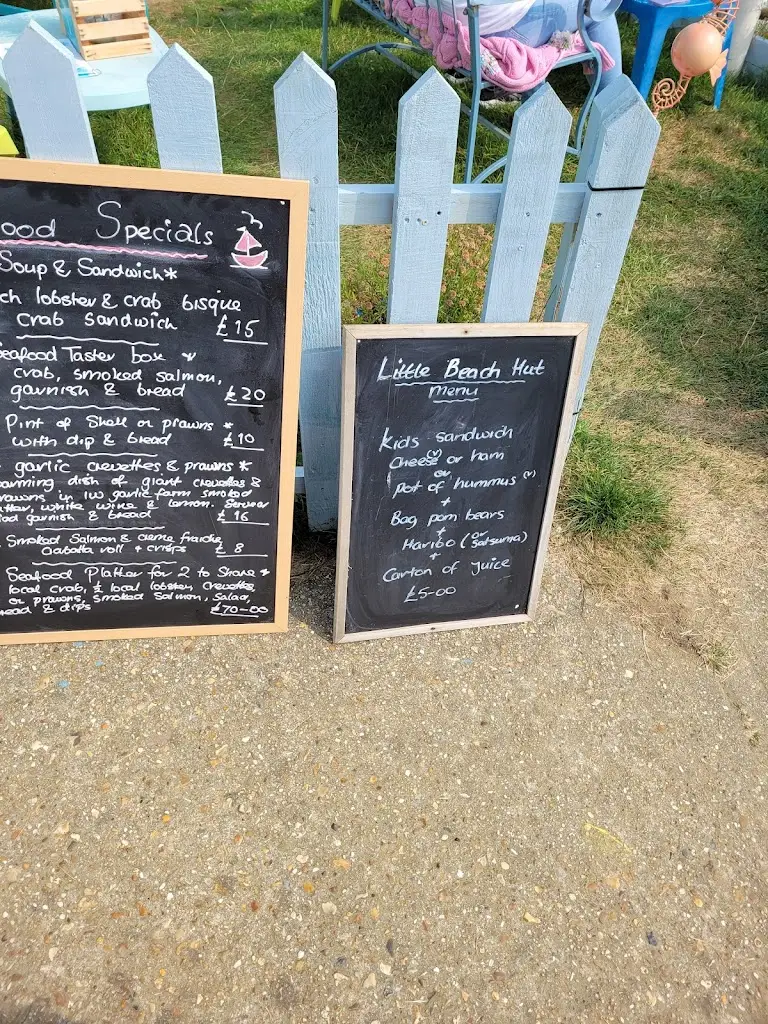 ood Specials
Soup & Sandwich*
ch lobster & crab bisque
crab sandwich £15
eafood Taster box *
crab, smoked salmon,
garnish & bread £20
Pint of Shell on prawns *
with dip & bread £10
garlic crevettes & prawns *
dish of giant crevettes &
rawns, in iw garlic farm smoked
white wine & lemon. Served
garnish & bread £16
Smoked Salmon & creme fraiche
Ciabatta roll + crisps £8
Seafood Platter for 2 to Share *
local crab, ½ local lobster, Crevettes
or prawns, Smoked Salmon, Salad,
ead & dips £70-00
Little Beach Hut
menu
Kids sandwich
Cheese (v) or ham
or
pot of hummus (v)
+
Bag pom bears
+
Haribo (or Satsuma)
+
Carton of juice
£5-00